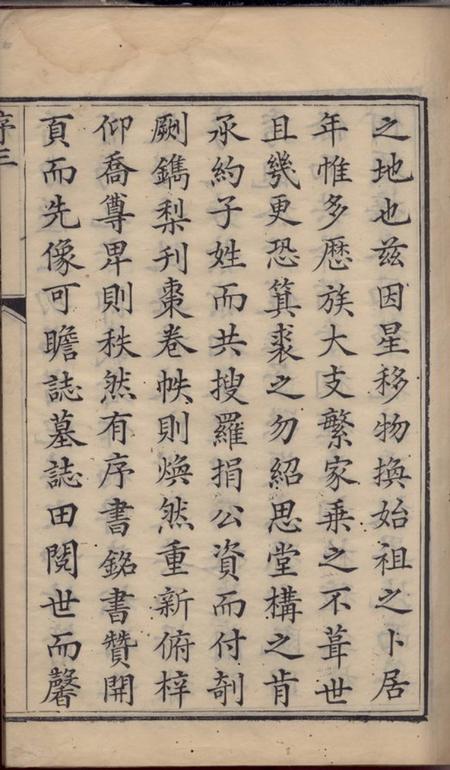 之地也兹因星移物換始祖之卜居
年惟多歷族大支繁家乗之不葺世
且幾更恐箕裘之勿紹思堂構之肯
承約子姓而共搜羅捐公資而付剞
劂鐫梨刊棗卷帙則煥然重新俯梓
仰喬尊卑則秩然有序書銘書贊開
頁而先像可瞻誌墓誌田閱世而馨
序三